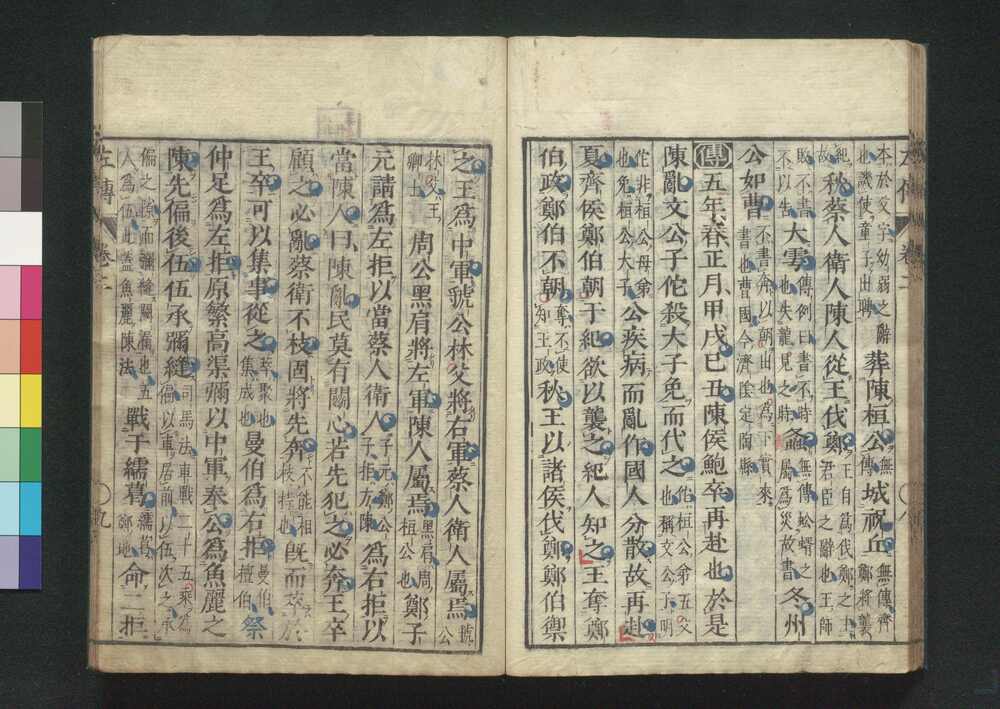 左傳 卷二 八
本於父字幼弱之辭也譏使童子出聘葬陳桓公無傳城祝丘無傳齊鄭將襲
紀故秋蔡人衛人陳人從王伐鄭王自爲伐鄭之主君臣之辭也王師
敗不書不以告大雩傳例曰書不時也失龍見之時螽無傳蚣蝑之屬爲災故書冬州
公如曹不書奔以朝出也爲下實來書也曹國今濟陰定陶縣
傳五年春正月甲戌己丑陳侯鮑卒再赴也於是
陳亂文公子佗殺大子免而代之佗桓公弟五父也稱文公子明
佗非桓公母弟也免桓公大子公疾病而亂作國人分散故再赴
夏齊侯鄭伯朝于紀欲以襲之紀人知之王奪鄭
伯政鄭伯不朝奪不使知王政秋王以諸侯伐鄭鄭伯禦
之王爲中軍虢公林父將右軍蔡人衛人屬焉虢公
林父王卿士周公黑肩將左軍陳人屬焉黑肩周桓公也鄭子
元請爲左拒以當蔡人衛人子元鄭公子拒方陳爲右拒以
當陳人曰陳亂民莫有鬭心若先犯之必奔王卒
顧之必亂蔡衛不枝固將先奔不能相枝持也既而萃於
王卒可以集事從之萃聚也集成也曼伯爲右拒曼伯檀伯祭
仲足爲左拒原繁高渠彌以中軍奉公爲魚麗之
陳先偏後伍伍承彌縫司馬法車戰二十五乘爲偏以車居前以伍次之承
偏之隙而彌縫闕漏也五人爲伍此蓋魚麗陳法戰于繻葛繻葛鄭地命二拒
左傳 卷二 九